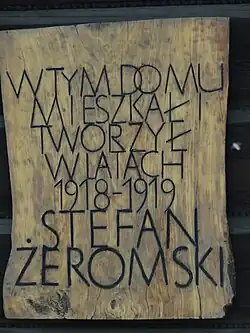 W TYM DOMU
MIESZKAŁ I
TWORZYŁ
W LATACH
1918-1919
STEFAN
ŻEROMSKI